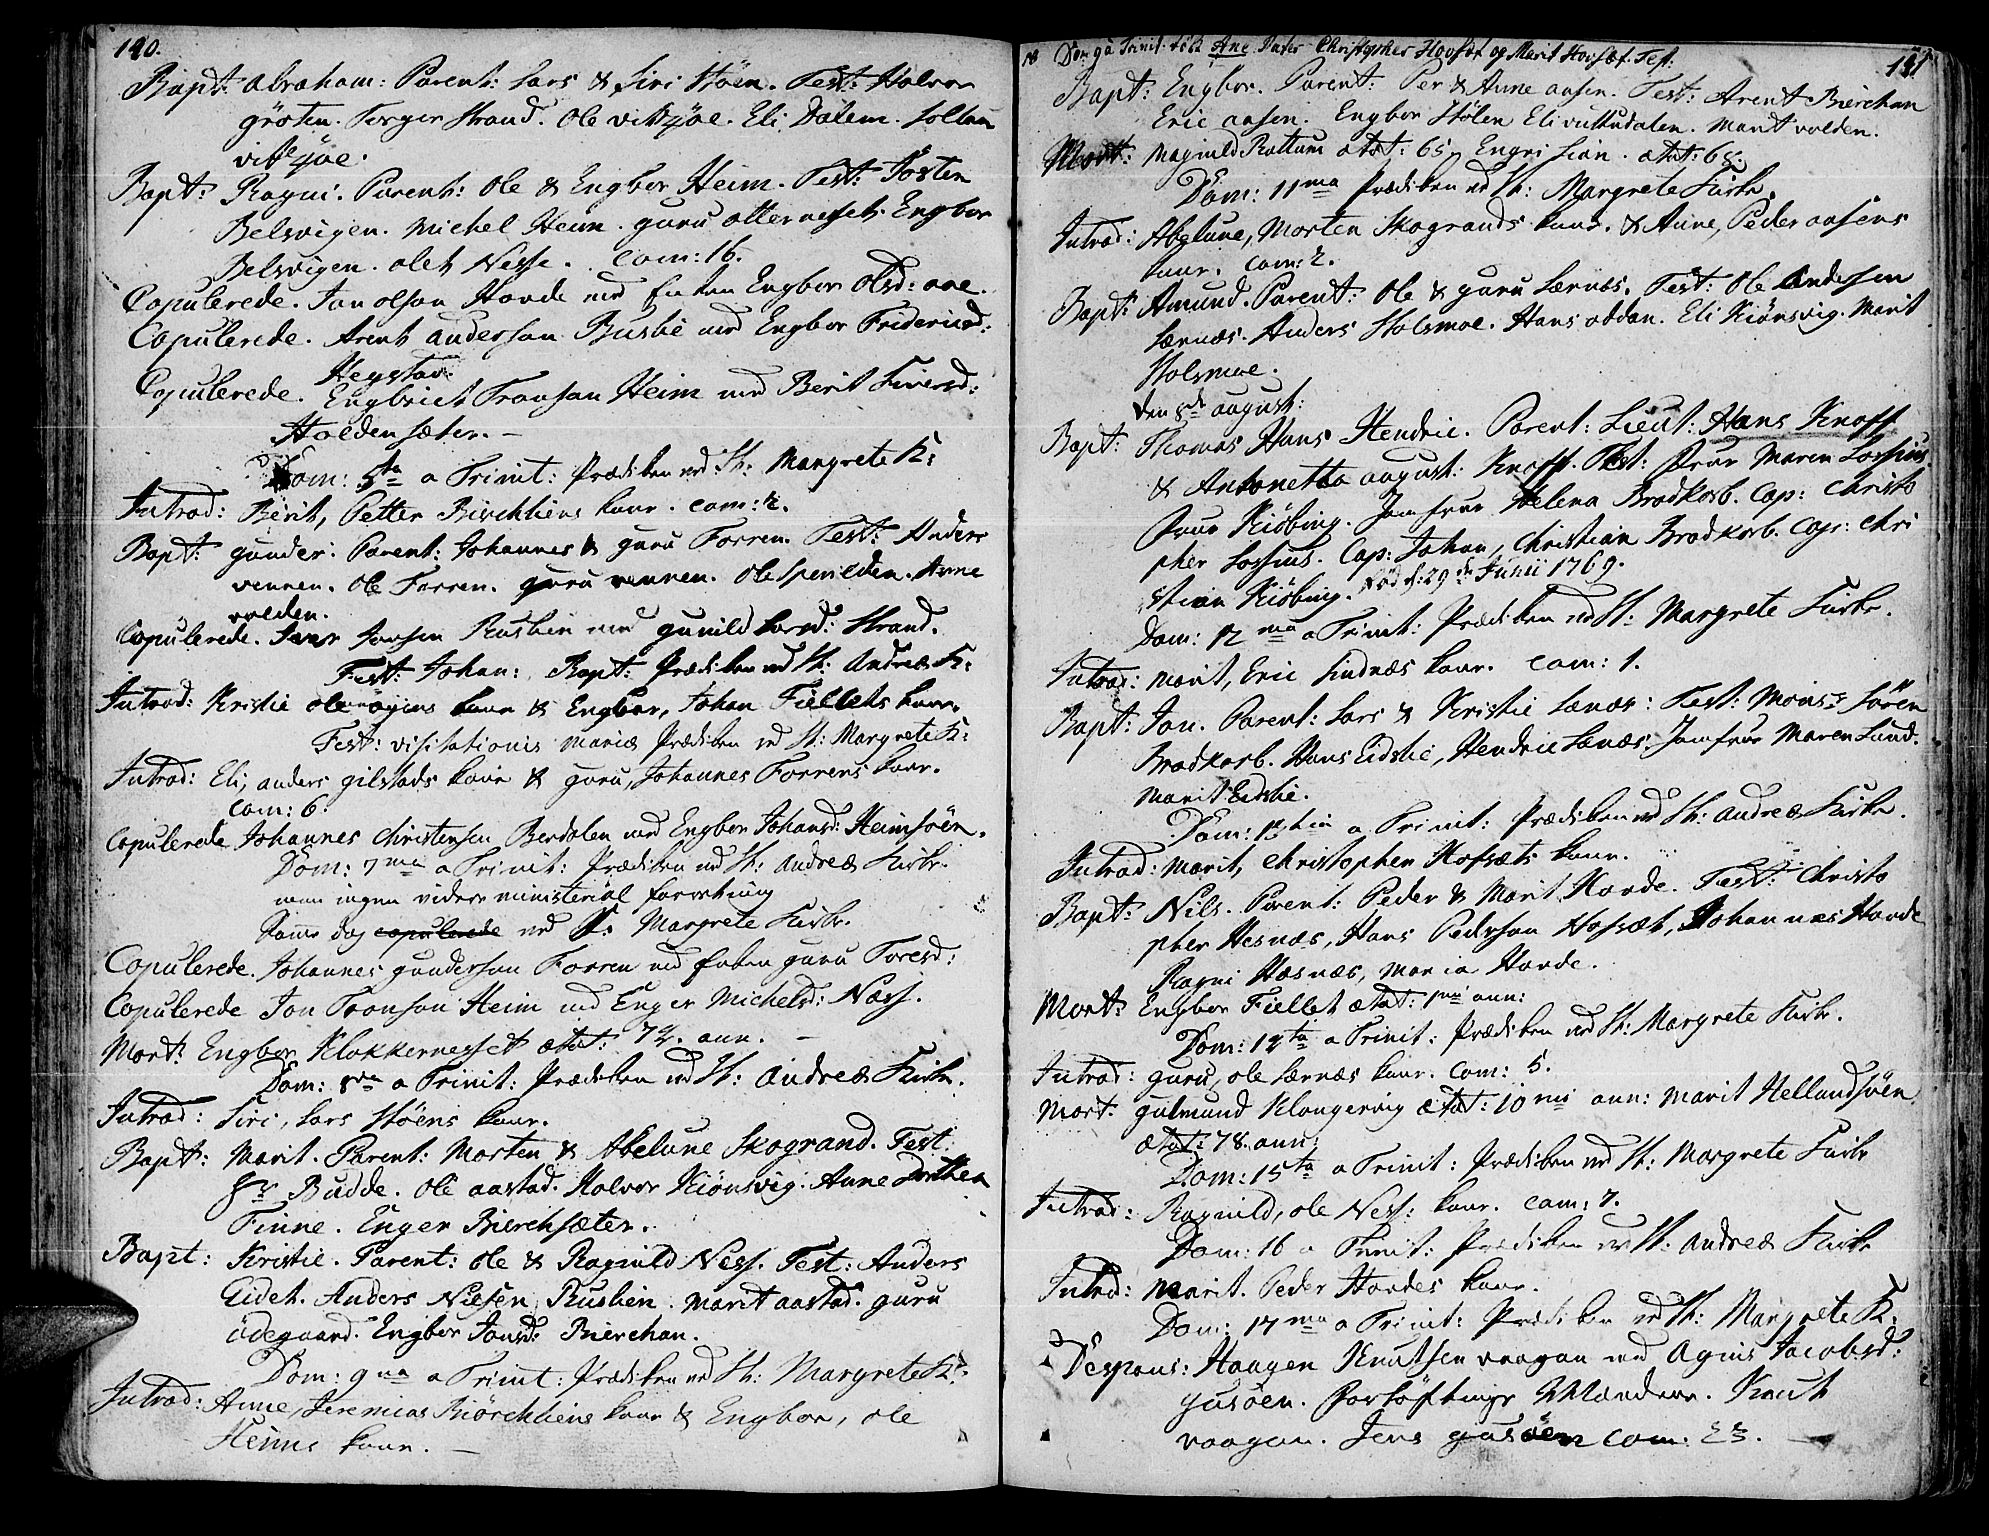 140.
Bapt: Abraham: Parent: Lars & Siri Stöen. Test: Halvor
gröten. Torger Strand. Ole vitsöe. Eli Dalem.
vitsöe.
Bapt: Ragni. Parent: Ole & Engbor Heim. Test: Josten
Belsvigen. Michel Heim. guru otternesset. Engbor
Belsvigen. olet Nesse. Com: 16.
Copulerede. Jon olson Hovde med Engbor Olsd: aae.
Copulerede. Arent anderson Busbie med Engbor Friderichsd:
Hegstad.
Copulerede. Engbrict Tronson Heim med Berit Siversd:
Holdensæter. –
Dom: 5ta a Trinit: Prædiken ved St: Margrete K:
Introd: Berit, Petter Birchliens kone. com: 2.
Bapt: gunder: Parent: Johannes & guru Forren. Test: Anders
vennen. Ole Forren. guru vennen. Ole Spenilden. Anne
volden.
Copulerede. Jonsen Ruslien med gunild Larsd: Strand.
Fest: Johan: Bapt: Prædiken ved St: Andreæ K:
Introd: Kristie ole öyens kone & Engbor, Johan Fiellets kone.
Fest: visitationis Mariæ Prædiken ved St: Margrete K:
Introd: Eli, anders gilstads kone & guru, Johannes Forrens kone.
com: 6.
Copulerede Johannes Christensen Berdalen med Engbor Johansd: Heimsöen.
Dom: 7ma a Trinit: Prædiken ved St: Andreæ Kirke.
men ingen videre ministerial forretning
Samme dag copulerede ved St: Margrete Kirke.
Copulerede. Johannes gunderson Forren med guru Toresd:
Copulerede Jon Tronson Heim med Enger Michelsd: Næss.
Mort: Engbor Klokkernesset ætat: 72. ann. –
Dom: 8va a Trinit: Prædiken ved St: Andreæ Kirke.
Introd: Siri, Lars Stöens kone.
Bapt: Marit. Parent: Morten & Abelune Skogrand. Test:
Hr Budde. Ole aastad. Halvor Kiönsvig. Anne Dorthea
Finne. Enger Bierchsæter.
Bapt: Kristie. Parent: Ole & Ragnild Ness. Test: Anders
Eidet. Anders Nielsen Ruslien. Marit aastad. guru
ödegaard. Engbor Jonsd: Bierchan.
Dom: 9na a Trinit: Prædiken ved St: Margrete K:
Introd: Anne, Jeremias Biörchliens kone & Engbor, ole
Heims kone. –
Dom 9a Trinit. döbt Ane Christopher Hovset og Marit Hovsæt. Test:
141
Bapt: Engbor. Parent: Per & Anne aasen. Test: Arent Bierchan
Eric aasen. Engbor Stölen Eli vuttudalen. Marit volden.
Mort: Magnild Rottum ætat: 65, Engri Lian. ætat: 68.
Dom: 11ma Prædiken ved St: Margrete Kirke.
Introd: Abelune, Morten Skogrands kone. & Anne, Peder aasens
kone. com: 2.
Bapt: Amund. Parent: Ole & guru Lernæs. Test: Ole Andersen
Lernæs. Anders Holsmoe. Hans oddan. Eli Kiönsvig. Marit
Holsmoe.
den 8de august:
Bapt: Thomas Hans Hendric. Parent: Lieut: Hans Knoff
& Antonetta august: Knoff. Test: Frue Maren Lossius
Frue Kiöbing. Jomfrue Helena Bradkorb. Cap: Christo
pher Lossius. Cap: Johan, Christian Bradkorb. Cap: Chri
stian Kiöbing. föd d: 29de Junii 1769.
Dom: 12ma a Trinit: Prædiken ved St: Margrete Kirke.
Introd: Marit, Eric Lindnæs kone. Com: 1.
Bapt: Jon. Parent: Lars & Kristie Lenæs: Test: Monsr Sören
Bradkorb. Hans Eidslie, Hendric Lenæs. Jomfrue Maren Lund.
Marit Eidslie.
Dom: 13tia a Trinit: Prædiken ved St: Andreæ Kirke.
Introd: Marit, Christopher Hofsæts kone.
Bapt: Nils. Parent: Peder & Marit Hovde. Test: Christo
pher Hesnæs, Hans Pederson Hofsæt, Johannes Hovde
Ragni Hæsnæs, Maria Hovde.
Mort: Engbor Fiellet ætat: 1mi ann:
Dom: 14ta a Trinit: Prædiken ved St: Margrete Kirke.
Introd: guru, ole Lærnæs kone. Com: 5.
Mort: gulmund Klongervig ætat: 10mi ann: Marit Hellandsöen
ætat: 78. ann:
Dom: 15ta a Trinit: Prædiken ved St: Margrete Kirke
Introd: Ragnild, ole Ness: kone. Com: 7.
Dom: 16 a Trinit: Prædiken ved St: Andreæ Kirke
Introd: Marit. Peder Hovdes kone.
Dom: 17ma a Trinit: Prædiken ved St: Margrete K.
Despons: Haagen Knutsen vaagan med Agnis Jacobsd:
gusöen. Forlöftnings Mændene. Knut
vaagan. Jens gusöen com: 23. –